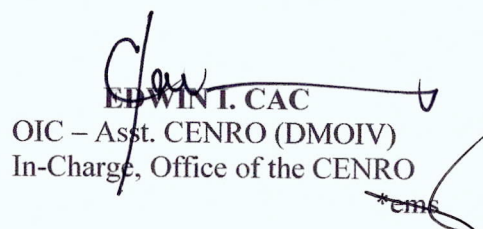 EDWIN I. CAC
OIC – Asst. CENRO (DMOIV)
In-Charge, Office of the CENRO
*ems